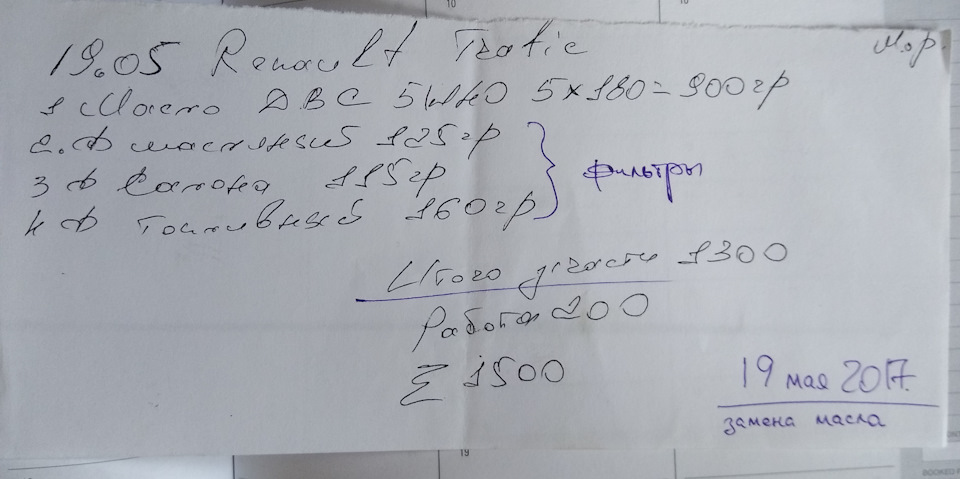 19.05 Renault Trafic
Мор.
1 Масло ДВС 5W40 5×180=900гр
2. Ф масляный 125гр
3 Ф Салона 115гр
4 Ф топливный 160гр
фильтры
Итого з/части 1300
Работа 200
Σ 1500
19 мая 2017.
замена масла
19